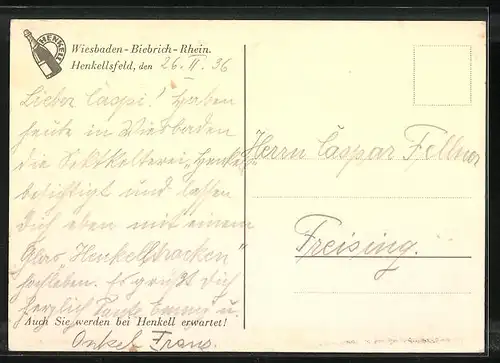 HENKELL
Wiesbaden-Biebrich-Rhein.
Henkellsfeld, den 26. II. 36
Lieber Caspi! Haben
heute in Wiesbaden
die Sektkellerei „Henkell"
besichtigt und lassen
Dich eben mit einem
Glas „Henkell trocken"
hochleben. Es grüßt Dich
herzlich Tante Emmy u.
Auch Sie werden bei Henkell erwartet!
Onkel Franz.
Herrn Caspar Fellner
Freising.